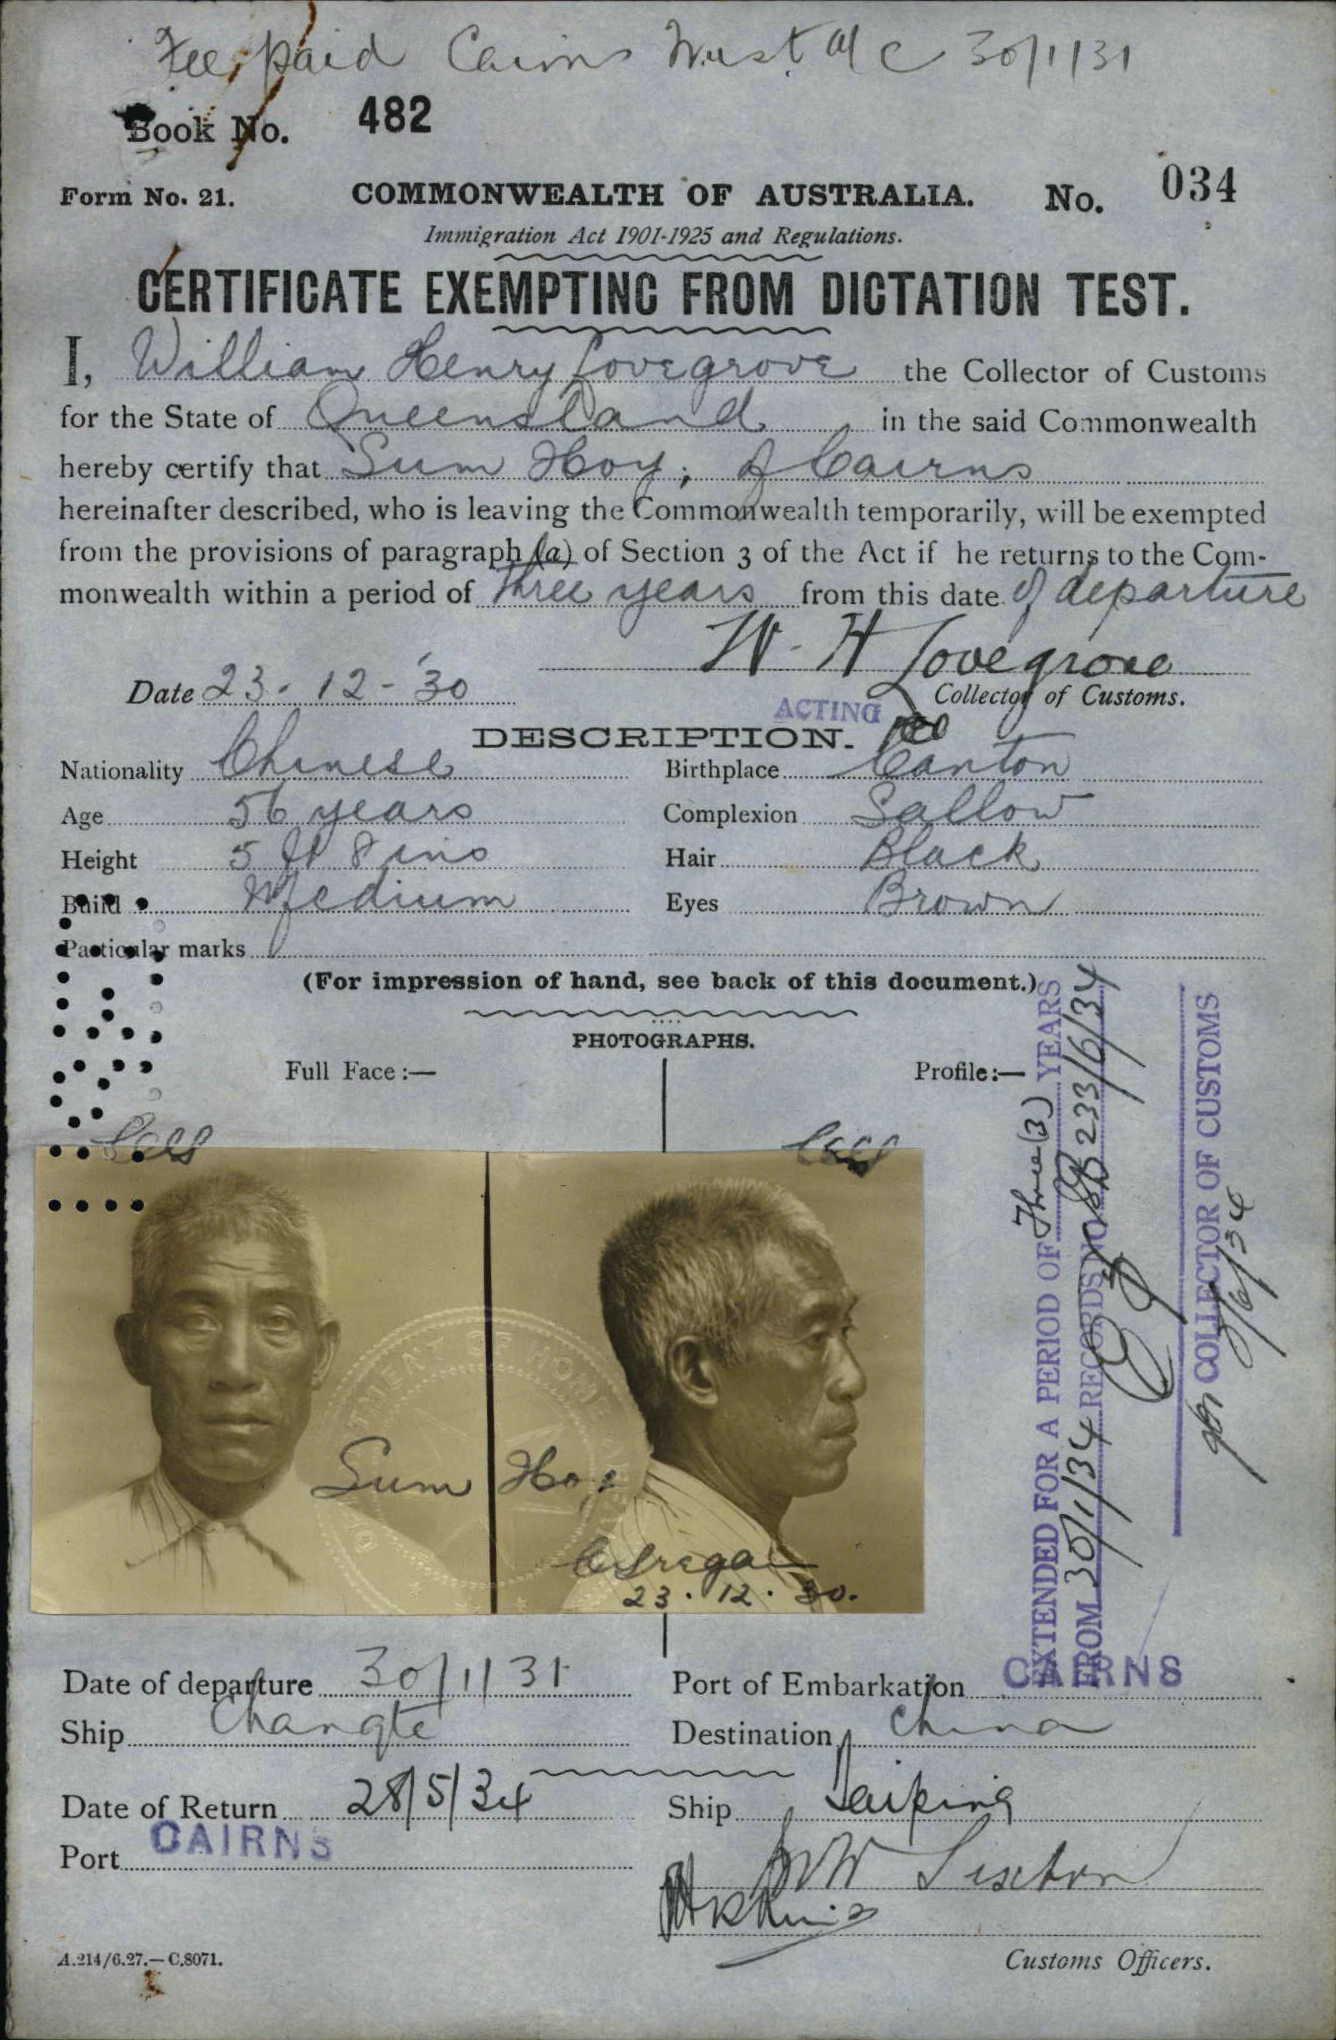 Fee paid Cairns 30/1/31
Book No. 482
Form No. 21. COMMONWEALTH OF AUSTRALIA. No. 034
Immigration Act 1901-1925 and Regulations.
CERTIFICATE EXEMPTING FROM DICTATION TEST.
I, William Henry Lovegrove the Collector of Customs
for the State of Queensland in the said Commonwealth
hereby certify that Sum Hoy; of Cairns
hereinafter described, who is leaving the Commonwealth temporarily, will be exempted
from the provisions of paragraph (a) of Section 3 of the Act if he returns to the Com-
monwealth within a period of three years from this date of departure
W. H Lovegrove
Date 23-12-'30 ACTING Collector of Customs.
DESCRIPTION.
Nationality Chinese Birthplace Canton
Age 56 years Complexion Sallow
Height 5 ft 8 ins Hair Black
Build Medium Eyes Brown
Particular marks
(For impression of hand, see back of this document.)
PHOTOGRAPHS.
Full Face:— Profile:—
Sum Hoy
23.12.30.
EXTENDED FOR A PERIOD OF Three (3) YEARS
FROM 30/1/34 RECORDS NO. 233/6/34
for COLLECTOR OF CUSTOMS
Date of departure 30/1/31 Port of Embarkation CAIRNS
Ship Changte Destination China
Date of Return 28/5/34 Ship Taiping
Port CAIRNS
Customs Officers.
A.214/6.27.—C.8071.